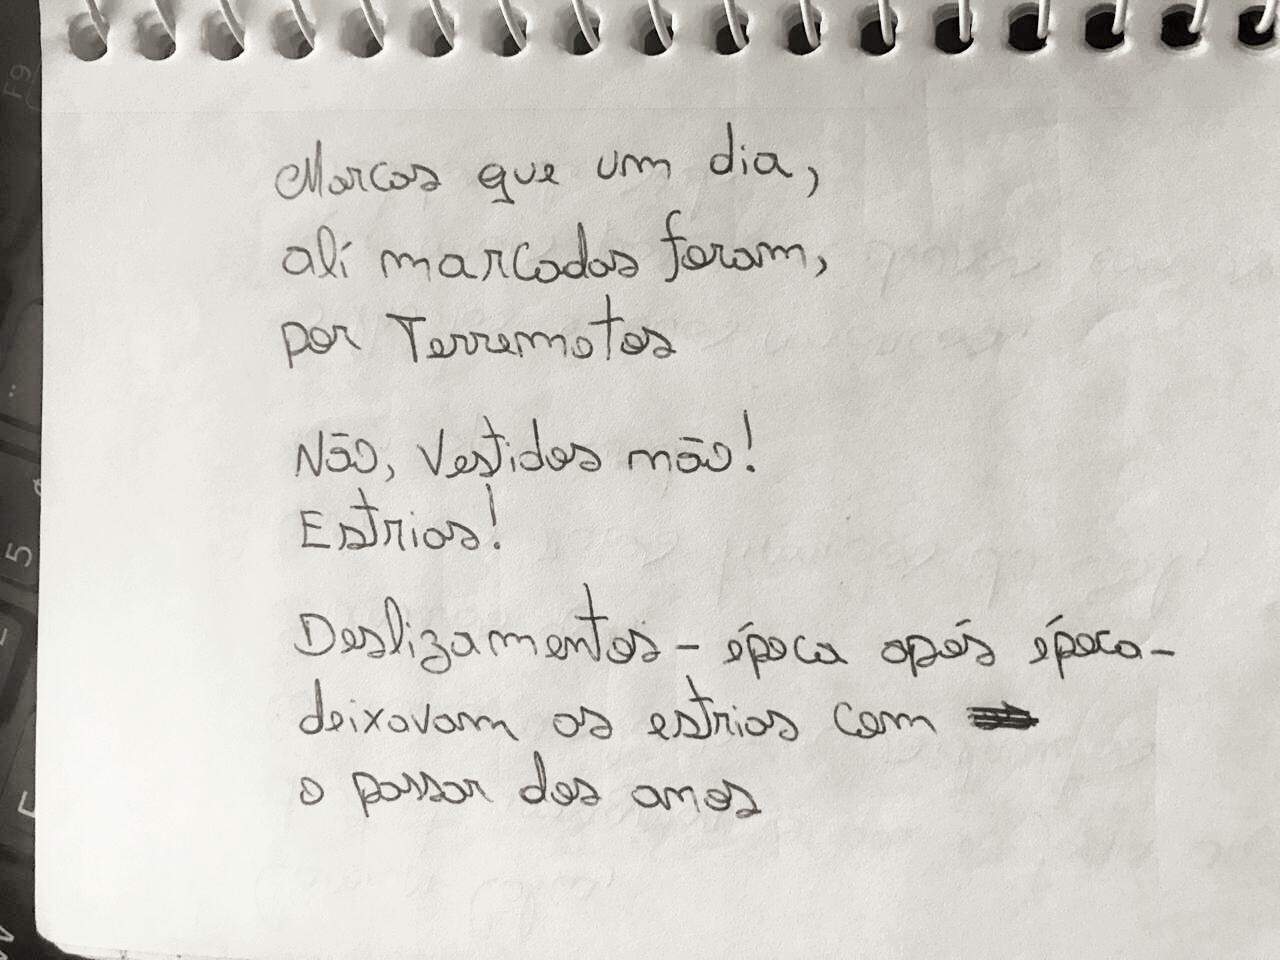 Marcas que um dia,
ali marcadas foram,
por Terremotos
Não, Vestidos não!
Estrias!
Deslizamentos - época após época -
deixavam as estrias com
o passar dos anos